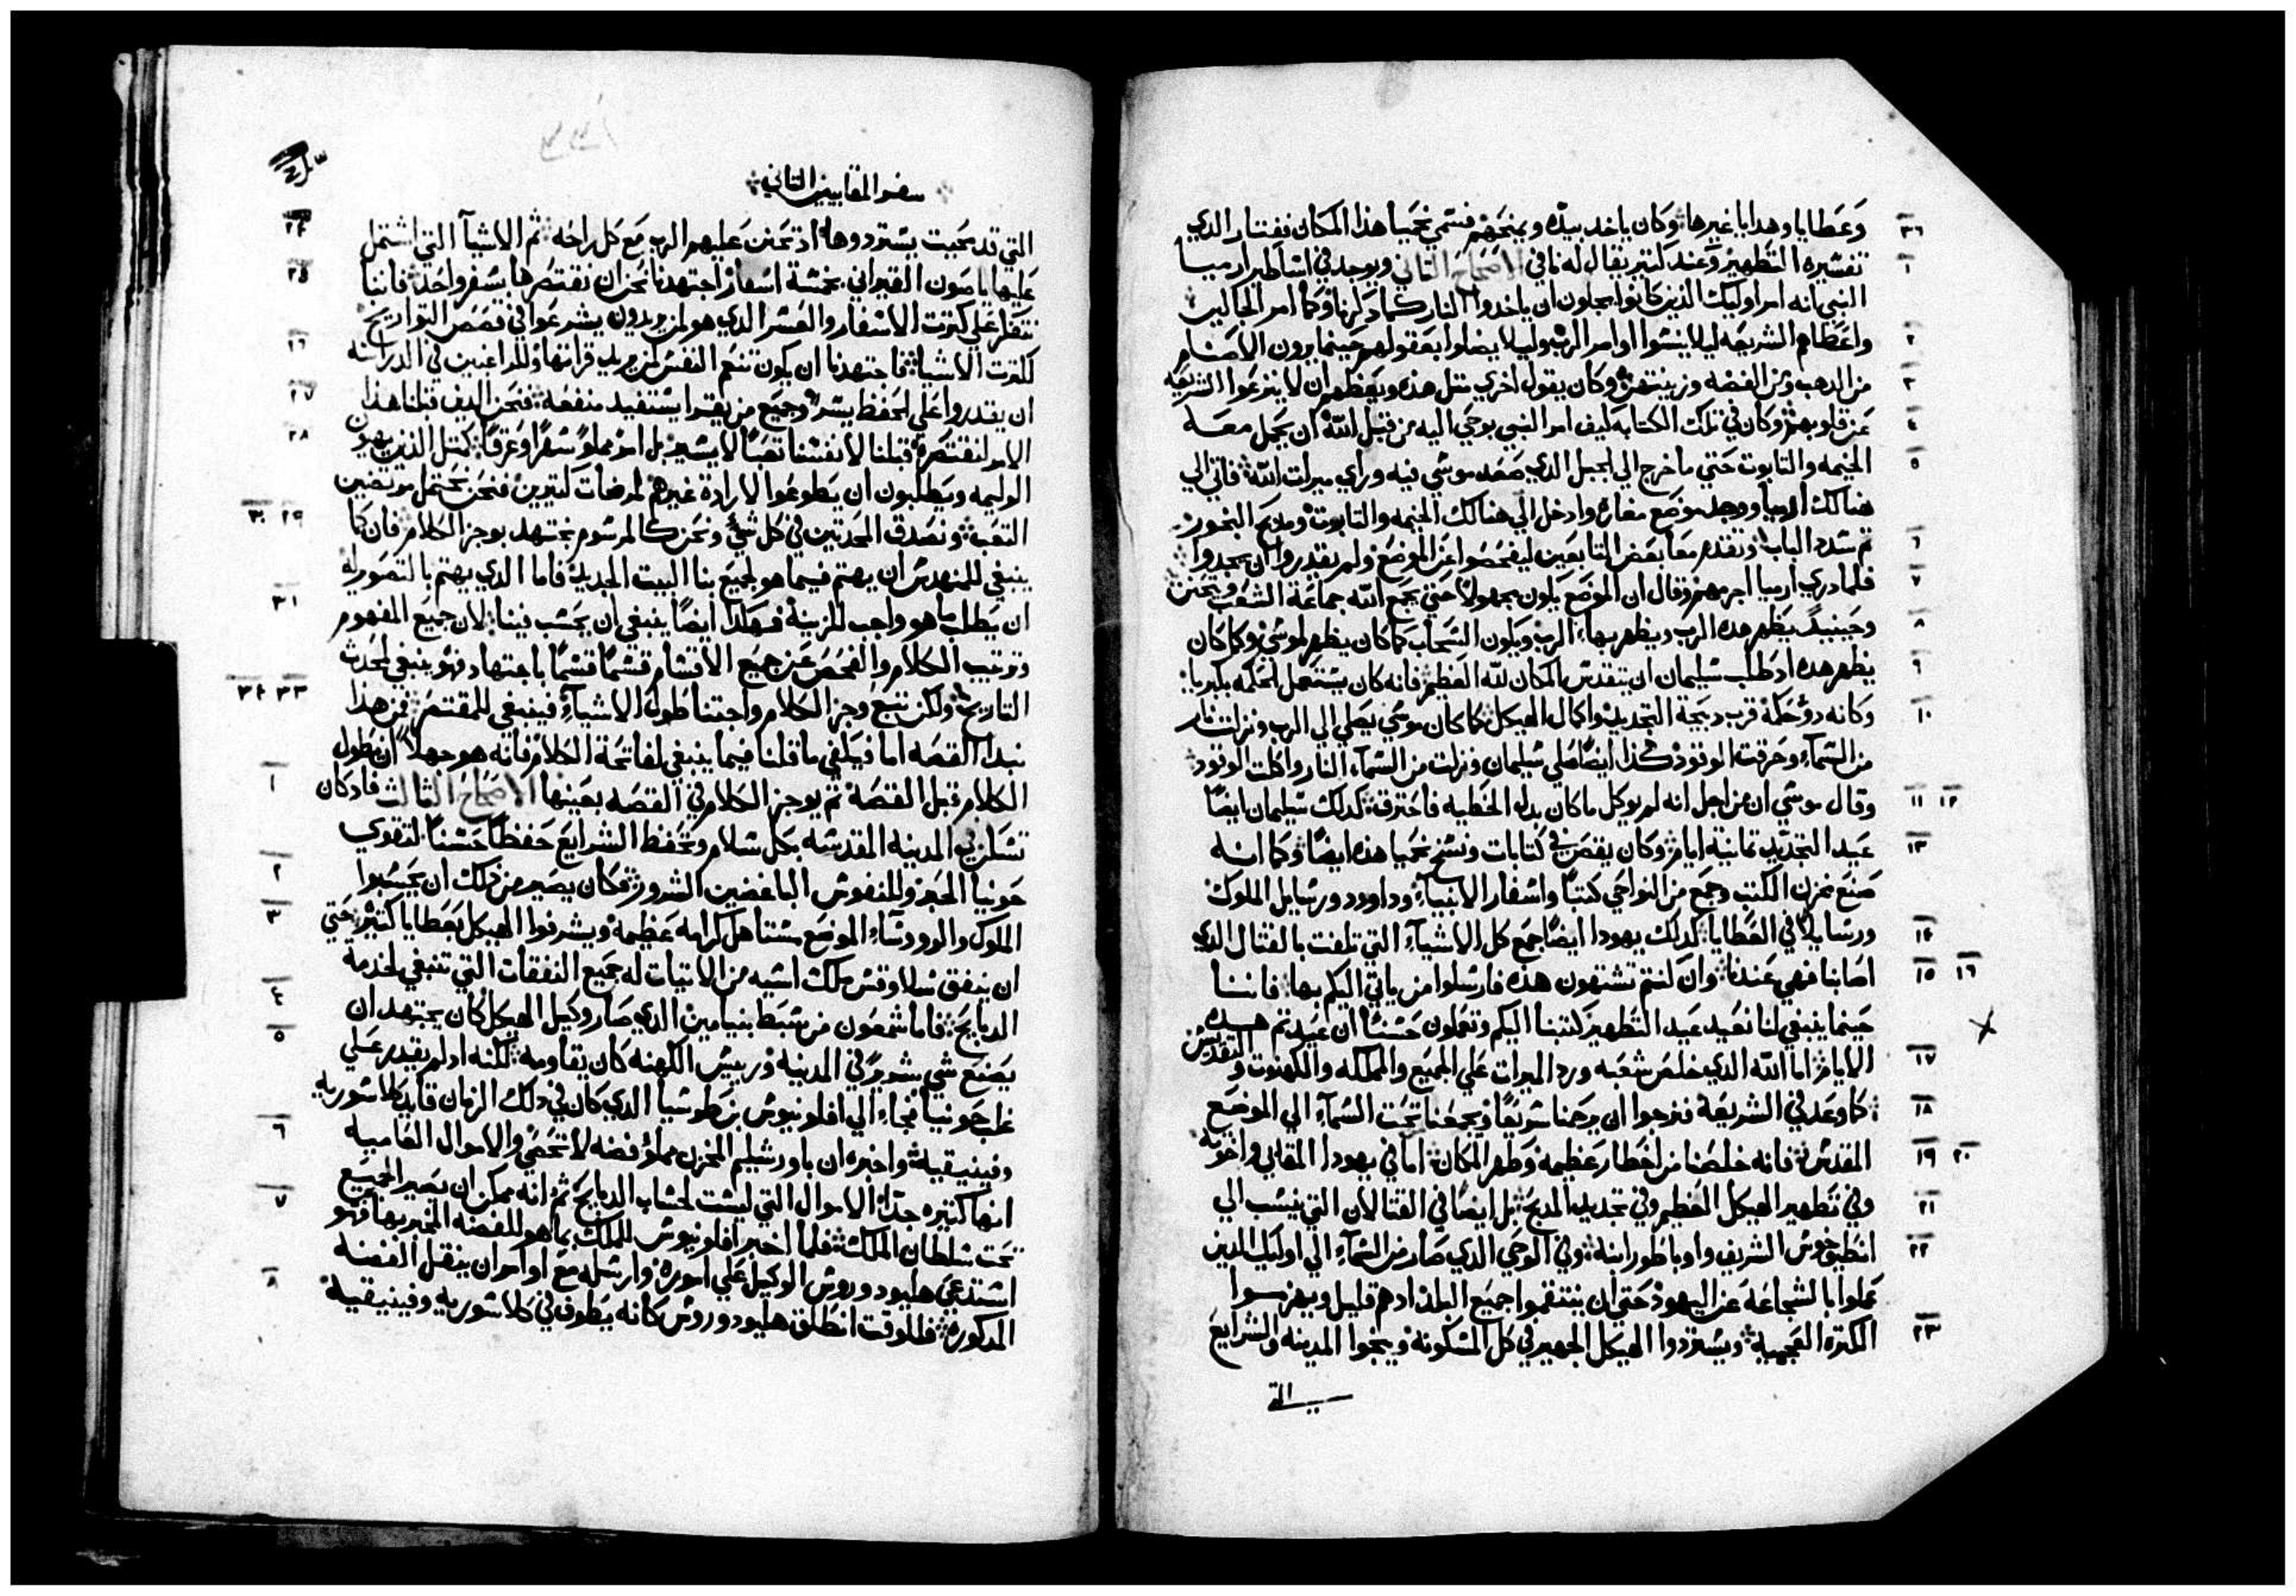 وعطايا وهدايا غيرها وكان ياخد بيده ويمنحهم فسمي نحميا هذا المكان نفتار الدي
تفسيره التطهير وعند كتير يقال له نافي الاصحاح التاني ويوجد في اساطير ارميا
النبي انه امر اوليك الذين كانوا يجلون ان ياخدوا النار كما دكرنا وكما امر الجاليين
واعطاهم الشريعه ليلا ينسوا اوامر الرب وليلا يضلوا بعقولهم حينما يرون الاصنام
من الدهب ومن الفضه وزينتهن وكان يقول اخري متل هده ويعظهم ان لا ينزعوا الشريعه
عن قلوبهم وكان في تلك الكتابه كيف امر النبي بوحي اليه من قبل الله ان يحمل معه
الخيمه والتابوت حتي ما خرج الي الجبل الدي صعد موسي فيه وراي ميرات الله فاتي الي
هنالك ارميا ووجد موضع مغاره وادخل الي هنالك الخيمه والتابوت ومدبح البخور
تم سدد الباب وتقدم معا بعض التابعين ليفحصوا عن الموضع ولم يقدروا ان يجدوا
فلما دري ارميا اجرمهم وقال ان الموضع يكون مجهولا حتي يجمع الله جماعة الشعب ويتحنن
وحينيد يظهر هده الرب ويظهر بهاء الرب ويكون السحاب كما كان يظهر لموسي وكما كان
يظهر هده اد طلب سليمان ان يتقدس المكان لله العظيم فانه كان يستعمل الحكمه بكبريا
وكانه دو حكمة قرب دبيحة التجديد واكمال الهيكل كما كان موسي يصلي الي الرب ونزلت نار
من السماء وحرقت الوقود كذا ايضا صلي سليمان ونزلت من السماء النار واكلت الوقود
وقال موسي ان من اجل انه لم يوكل ما كان بدل الخطيه فاحترقة كدلك سليمان ايضا
عيد التجديد تمانية ايام وكان يقصص في كتابات ونسخ نحميا هده ايضا وكما انه
صنع مخزن الكتب وجمع من النواحي كتبا واسفار الانبياء وداوود ورسايل الملوك
ورسايلا في العطايا كدلك يهودا ايضا جمع كل الاشياء التي تلفت بالقتال الدي
اصابنا فهي عندنا وان كنتم تشتهون هده فارسلوا من ياتي اليكم بها فاننا
حينما ينبغي لنا نعيد عيد التطهير كتبنا اليكم وتعملون حسنا ان عيدتم هده
الايام اما الله الدي خلص شعبه ورد الميرات علي الجميع والمملكه والكهنوت والتقديس
كما وعد في الشريعه فنرجوا ان يرحمنا سريعا ويجمعنا تحت السماء الي الموضع
المقدس فانه خلصنا من اخطار عظيمه وطهر المكان اما في يهودا المقابي واخوته
وفي تطهير الهيكل العظيم وفي تجديد المدبح بل ايضا في القتالات التي ينسب الي
انطيوخوس الشريف واوباطور ابنه وفي الوحي الدي صار من السماء الي اوليك الدين
عملوا بالشجاعة عن اليهود حتي ان ينتقموا جميع البلد ادهم قليل ويهزموا
الكترة العجمية ويستردوا الهيكل الجهير في كل المسكونه وينجوا المدينه والشرايع
التي
سفر المقابيين التاني
التي قد محيت يستردوها اد تحنن عليهم الرب مع كل راحه تم الاشيا التي اشتمل
عليها ياصون القيراني بخمسة اسفار اجتهدنا نحن ان نقتصرها بسفر واحد فاننا
ننظر علي كترت الاسفار والعسر الدي هو لمن يريدون يشرعوا في قصص التواريخ
لكترت الاشيا فاجتهدنا ان يكون تنعم النفس لمن يريد قراتها وللراغبين في الدراسه
ان يقدروا علي الحفظ يسرا وجميع من يقرا يستفيد منفعه فنحن الدين قبلنا هدا
الامر لنقتصره قبلنا لانفسنا تعبا لا يسير بل امر مملو سهرا وعرقا كمتل الدين يهيون
الوليمه ويطلبون ان يطوعوا لارادة غيرهم لمرضات كتيرين فنحن نحتمل مرتضيين
التعب ونصدق المحدتين في كل شي ونحن كالمرسوم نجتهد بوجز الكلام فان كما
ينبغي للمهندس ان يهتم فيما هو لجميع بنا البيت الجديد فاما الدي يهتم بالتصوير له
ان يطلب ما هو واجب للزينة فهكدا ايضا ينبغي ان يحسب فينا لان جميع المفهوم
وترتيب الكلام والفحص عن جميع الاقسام قسما قسما باجتهاد فهو ينبغي لمحدت
التاريخ ولكن نتبع وجز الكلام واجتنا طول الاشياء فينبغي للمقتصر فمن هدا
نبدا القصه اما فيكفي ما قلنا فيما ينبغي لفاتحة الكلام فانه هو جهلا ان يطول
الكلام قبل القصة تم يوجز الكلام في القصه بعينها الاصحاح التالت فاد كان
تسكن في المدينه المقدسه بكل سلام وتحفظ الشرايع حفظا حسنا لتقوي
حونيا الحبر والنفوس الباغضين الشرور فكان يصير من دلك ان يحسبوا
الملوك والرووساء الموضع مستاهل كرامه عظيمه ويشرفوا الهيكل بعطايا كتيره حتي
ان ينفق سلاوقس ملك اسيه من الاتيات له جميع النفقات التي تنبغي لخدمة
الدبايح فاما شمعون من سبط بنيامين الدي صار وكيل الهيكل كان يجتهد ان
يصنع شي شرير في المدينه ورييس الكهنه كان يقاومه لكنه اد لم يقدر علي
غلب حونيا فجاء الي افلونيوس بن طرسيا الدي كان في دلك الزمان قايد كلاسوريه
وفينيقية واخبره ان باورشليم المخزن مملو فضه لا تحصي والاموال العاميه
انها كتيره جدا الاموال التي ليست لحساب الدبايح تم انه ممكن ان يصير الجميع
تحت سلطان الملك فلما اخبر افلونيوس للملك بما هو للفضه المخبر بها فهو
استدعي هليودوروس الوكيل علي اموره وارسله مع اوامر ان ينقل الفضه
المدكوره فللوقت انطلق هليودوروس كانه يطوف في كلاسوريه وفينيقية